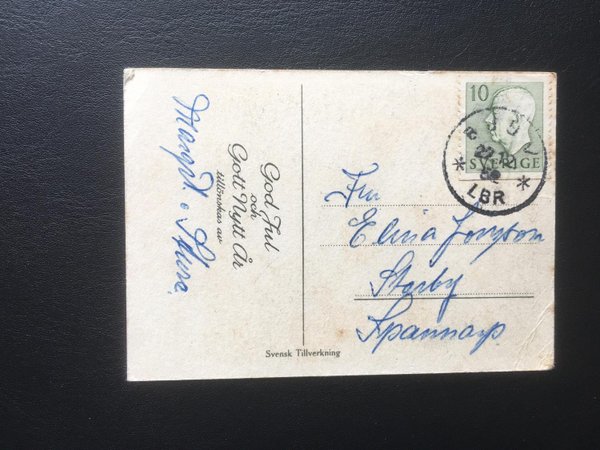 God Jul
och
Gott Nytt År
tillönskas av
Margit o Sture
Svensk Tillverkning
10
SVERIGE
LBR
Fru
Elina Jonsson
Starby
Spannarp